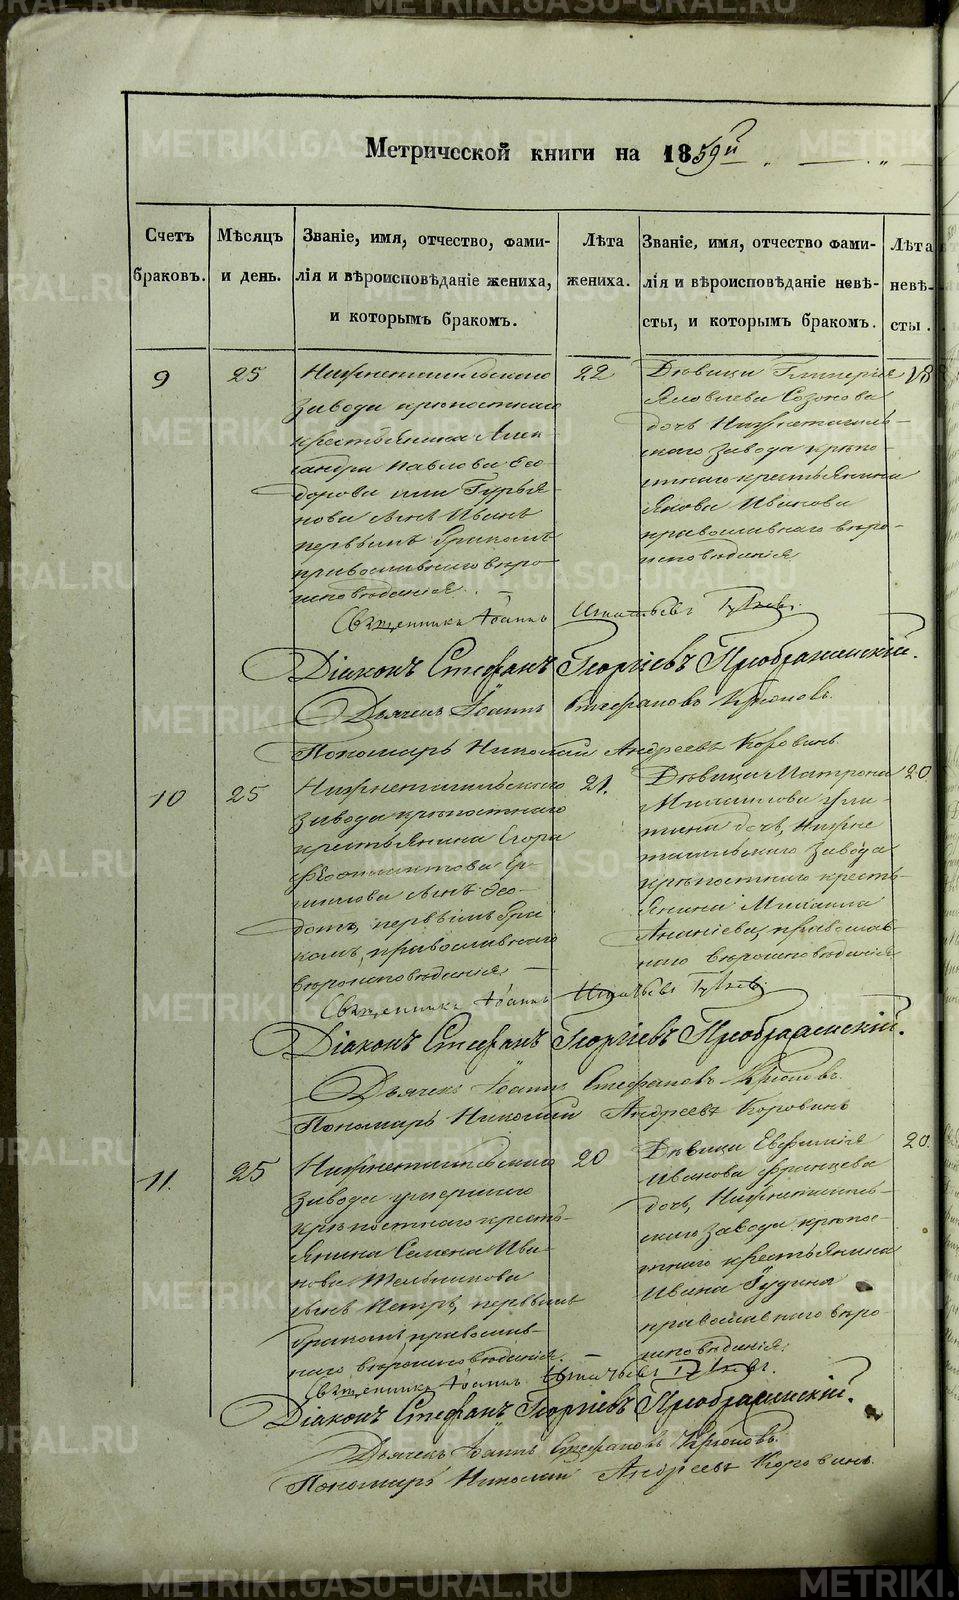 Метрической книги на 1859й
Счетъ браковъ.
Мѣсяцъ и день.
Званіе, имя, отчество, фами-
лія и вѣроисповѣданіе жениха,
и которымъ бракомъ.
Лѣта жениха.
Званіе, имя, отчество фами-
лія и вѣроисповѣданіе невѣ-
сты, и которымъ бракомъ.
Лѣта невѣ-
сты.
9
25
Нижнетагильскаго
завода крѣпостнаго
крестьянина Алек-
сандра Павлова Ѳео-
дорова или Гурья-
нова сынъ Иванъ
первымъ бракомъ
православнаго вѣро-
исповѣданія.
22
Дѣвица Гликерія
Яковлева Созонова
дочь Нижнетагиль-
скаго завода крѣпо-
стнаго крестьянина
Якова Иванова
православнаго вѣро-
исповѣданія
18
Священникъ Іоаннъ Игнатьевъ
Діаконъ Стефанъ Георгіевъ Преображенскій.
Дьячекъ Іоаннъ Стефановъ Крюковъ
Пономарь Николай Андреевъ Коровинъ
10
25
Нижнетагильскаго
завода крѣпостнаго
крестьянина Егора
сынъ Ѳео-
дотъ, первымъ бра-
комъ, православнаго
вѣроисповѣданія
21.
Дѣвица Матрона
Михаилова
дочь, Нижне
тагильскаго завода
крѣпостнаго кресть-
янина Михаила
Ананіева, православ-
наго вѣроисповѣданія
20
Священникъ Іоаннъ Игнатьевъ
Діаконъ Стефанъ Георгіевъ Преображенскій.
Дьячекъ Іоаннъ Стефановъ Крюковъ
Пономарь Николай Андреевъ Коровинъ
11.
25
Нижнетагильскаго
завода умершаго
крѣпостнаго кресть-
янина Семена Ива-
нова Мельникова
сынъ Петръ, первымъ
бракомъ православ-
наго вѣроисповѣданія.
20
Дѣвица Евфимія
Иванова Францева
дочь, Нижнетагиль-
скаго завода крѣпос-
тнаго крестьянина
Ивана Гудина
православнаго вѣро-
исповѣданія.
20.
Священникъ Іоаннъ Игнатьевъ
Діаконъ Стефанъ Георгіевъ Преображенскій.
Дьячекъ Іоаннъ Стефановъ Крюковъ
Пономарь Николай Андреевъ Коровинъ
METRIKI.GASO-URAL.RU